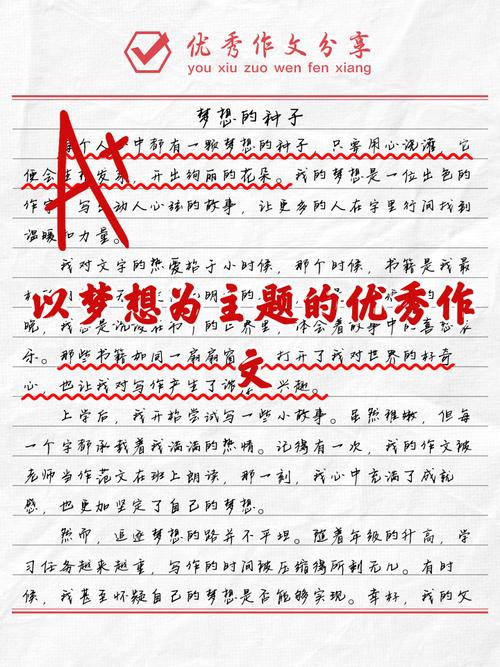 优秀作文分享
you xiu zuo wen fen xiang
梦想的种子
个人 中都有一颗梦想的种子，只要用心浇灌，它
便会生 发芽，开出绚丽的花朵。我的梦想是一位出色的
作 写 动人心弦的故事，让更多的人在字里行间找到
温暖和力量。
我对文字的热爱始于小时候，那个时候，书籍是我最
以梦想为主题的优秀作
文
晚，我总是沉浸在书 的世界里，体会着故事中的喜怒哀
乐。那些书籍如同一扇扇窗 打开了我对世界的好奇
心，也让我对写作产生了 兴趣。
上学后，我开始尝试写一些小故事。虽然稚嫩，但每
一个字都承载着我满满的热情。记得有一次，我的作文被
老师当作范文在班上朗读，那一刻，我心中充满了成就
感，也更加坚定了自己的梦想。
然而，追逐梦想的路并不平坦。随着年级的升高，学
习任务越来越重，写作的时间被压缩得所剩无几。有时
候，我甚至怀疑自己的梦想是否能够实现。幸好，我的父
A+